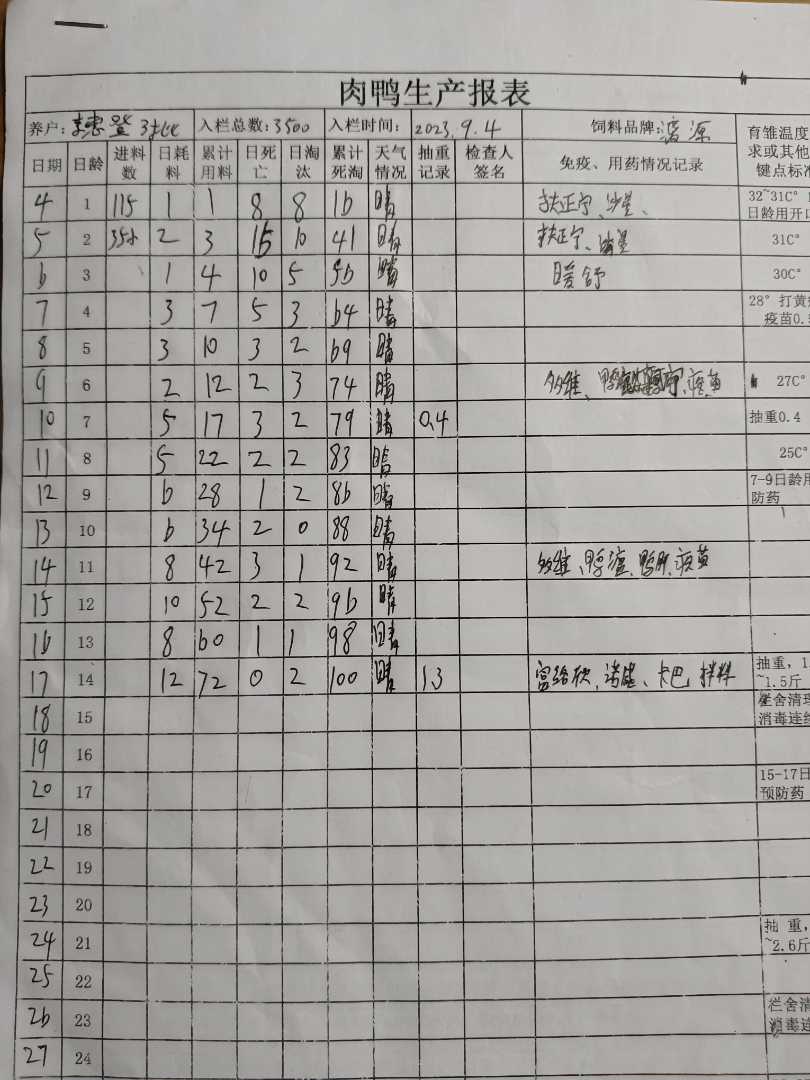 肉鸭生产报表
养户: 登 3批 入栏总数:3500 入栏时间: 2023.9.4 饲料品牌: 源 育雏温度
求或其他
键点标准
日期 日龄 进料数 日耗料 累计用料 日死亡 日淘汰 累计死淘 天气情况 抽重记录 检查人签名 免疫、用药情况记录
4 1 115 1 1 8 8 16 晴 扶正宁、 32~31C°
日龄用开口
5 2 2 3 15 10 41 晴 扶正宁、 31C°
6 3 1 4 10 5 56 晴 暖舒 30C°
7 4 3 7 5 3 64 晴 28° 打黄
疫苗0.
8 5 3 10 3 2 69 晴
9 6 2 12 2 3 74 晴 多维、 疫苗 27C°
10 7 5 17 3 2 79 晴 0.4 抽重0.4
11 8 5 22 2 2 83 晴 25C°
12 9 6 28 1 2 86 晴 7-9日龄用
防药
13 10 6 34 2 0 88 晴
14 11 8 42 3 1 92 晴 多维、鸭瘟、鸭肝、疫苗
15 12 10 52 2 2 96 晴
16 13 8 60 1 1 98 晴
17 14 12 72 0 2 100 晴 1.3 卡巴 拌料 抽重, 1.
~1.5斤
18 15 栏舍清理
消毒连续
19 16
20 17 15-17日
预防药
21 18
22 19
23 20
24 21 抽 重,
~2.6斤
25 22
26 23 栏舍清
消毒连
27 24